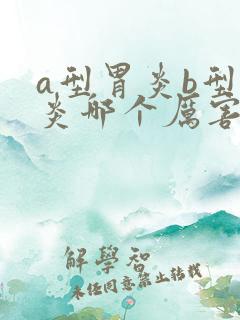 a型胃炎b型
炎哪个厉害
解學智
未经同意禁止转载